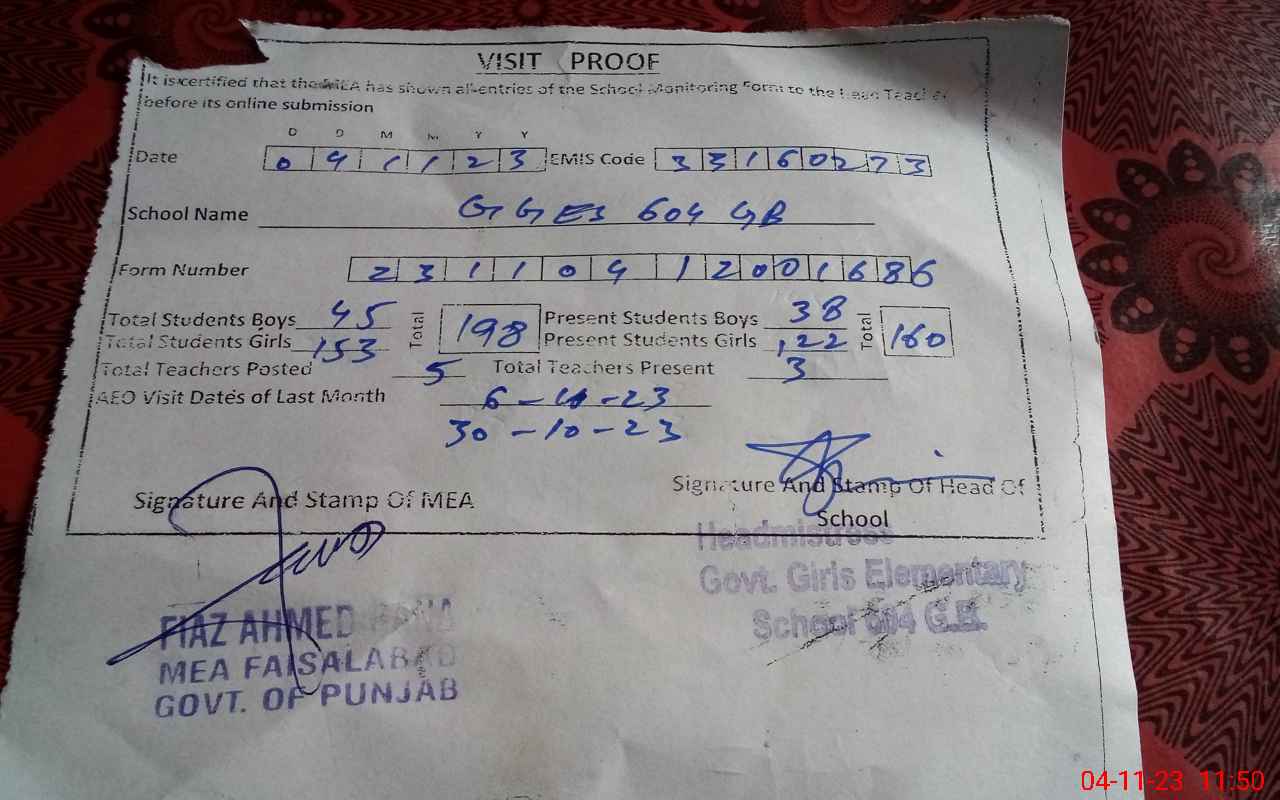 VISIT PROOF
It is certified that the MEA has shown all entries of the School Monitoring Form to the Head Teacher
before its online submission
D D M M Y Y
Date 0 4 1 1 2 3 EMIS Code 3 3 1 6 0 2 7 3
School Name GGES 604 GB
Form Number 2 3 1 1 0 4 1 2 0 0 1 6 8 6
Total Students Boys 45 Total 198 Present Students Boys 38 Total 160
Total Students Girls 153 Present Students Girls 122
Total Teachers Posted 5 Total Teachers Present 3
AEO Visit Dates of Last Month 6 - - 23
30 - 10 - 23
Signature And Stamp Of MEA Signature And Stamp Of Head Of
School
Headmistress
Govt. Girls Elementary
School 604 G.B.
FIAZ AHMED RANA
MEA FAISALABAD
GOVT. OF PUNJAB
04-11-23 11:50